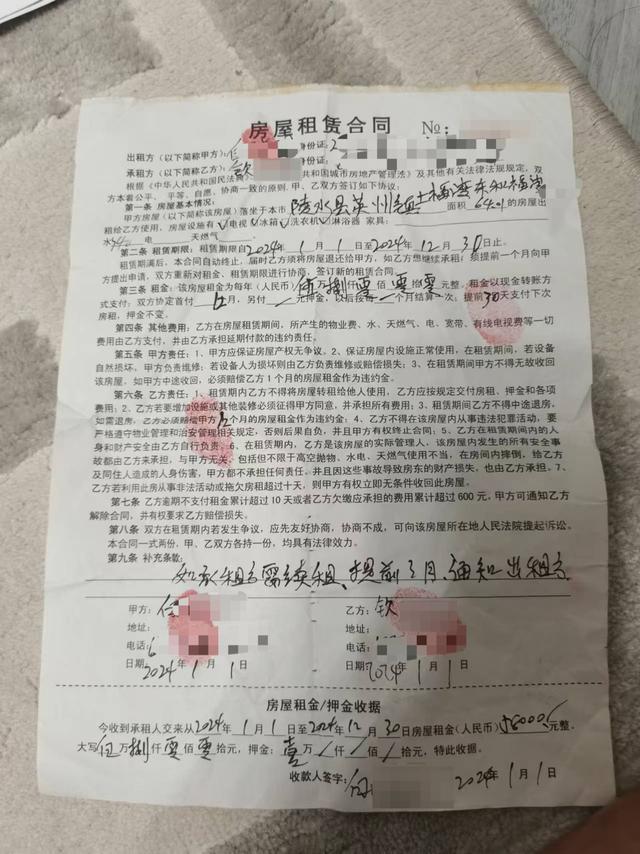 房屋租赁合同 No:
出租方（以下简称甲方）：任 身份证：2
承租方（以下简称乙方）：钦 身份证：
根据《中华人民共和国民法典》 共和国城市房地产管理法》及其他有关法律法规规定，双
方本着公平、平等、自愿、协商一致的原则，甲、乙双方签订如下协议：
第一条 房屋基本情况：
甲方房屋（以下简称该房屋）落坐于本市 陵水县英州镇 面积 64.01 的房屋出
租给乙方使用，房屋设施有 电视 冰箱 洗衣机 淋浴器 家具：
水 电 天然气
第二条 租赁期限：租赁期限自2024年1月1日至2024年12月30日止。
租赁期满后，本合同自动终止，届时乙方须将房屋退还给甲方，如乙方想继续承租，须提前一个月向甲
方提出申请，双方重新对租金、租赁期限进行协商，签订新的租赁合同。
第三条 租金：该房屋租金为每年（人民币）伍 捌零 零零 元整，租金以现金转账方
式支付：双方协定首付12月，另付 元押金，以后按每 个月结算一次；提前30天支付下次
房租，押金不变。
第四条 其他费用：乙方在房屋租赁期间，所产生的物业费、水、天燃气、电、宽带、有线电视费等一切
费用由乙方支付，并由乙方承担延期付款的违约责任。
第五条 甲方责任：1、甲方应保证房屋产权无争议。2、保证房屋内设施正常使用，在租赁期间，若设备
自然损坏，甲方负责维修；若设备人为损坏则由乙方负责维修或赔偿损失；3、在租赁期间甲方不得无故收回
该房屋。如甲方中途收回，必须赔偿乙方1个月的房屋租金作为违约金。
第六条 乙方责任：1、租赁期内乙方不得将房屋转租给他人使用，乙方应按规定交付房租、押金和各项
费用；2、乙方若要增加设施或其他装修必须征得甲方同意，并承担所有费用；3、租赁期间乙方不得中途退房，
如需退房，乙方必须赔偿甲方 个月的房屋租金作为违约金；4、乙方不得在该房屋内从事违法犯罪活动，要
严格遵守物业管理和治安管理相关规定，否则后果自负，并且甲方有权终止合同；5、乙方在租赁期间内的人
身和财产安全由乙方自行负责。6、在租赁期内，乙方是该房屋的实际管理人，该房屋内发生的所有安全事
故都由乙方来承担，与甲方无关，包括但不限于高空抛物、水电、天燃气使用不当，在房间内摔倒，给乙方
及同住人造成的人身伤害，甲方都不承担任何责任，并且因这些事故导致房东的财产损失，也由乙方承担。7、
乙方若利用此房从事非法活动或拖欠房租超过十天，则甲方有权立即无条件收回此房屋。
第七条 乙方逾期不支付租金累计超过10天或者乙方欠缴应承担的费用累计超过600元，甲方可通知乙方
解除合同，并有权要求乙方赔偿损失。
第八条 双方在租赁期内若发生争议，应先友好协商，协商不成，可向该房屋所在地人民法院提起诉讼。
本合同一式两份，甲、乙双方各持一份，均具有法律效力。
第九条 补充条款：
如承租方需续租、提前3月、通知出租方
甲方：任 乙方：钦
地址： 地址：
电话： 电话：
日期：2024年1月1日 日期：2024年1月1日
房屋租金/押金收据
今收到承租人交来从2024年1月1日至2024年12月30日房屋租金（人民币）58000元整，
大写伍万捌仟零佰零拾元，押金：壹万/仟/佰/拾元，特此收据。
收款人签字：任 2024年1月1日